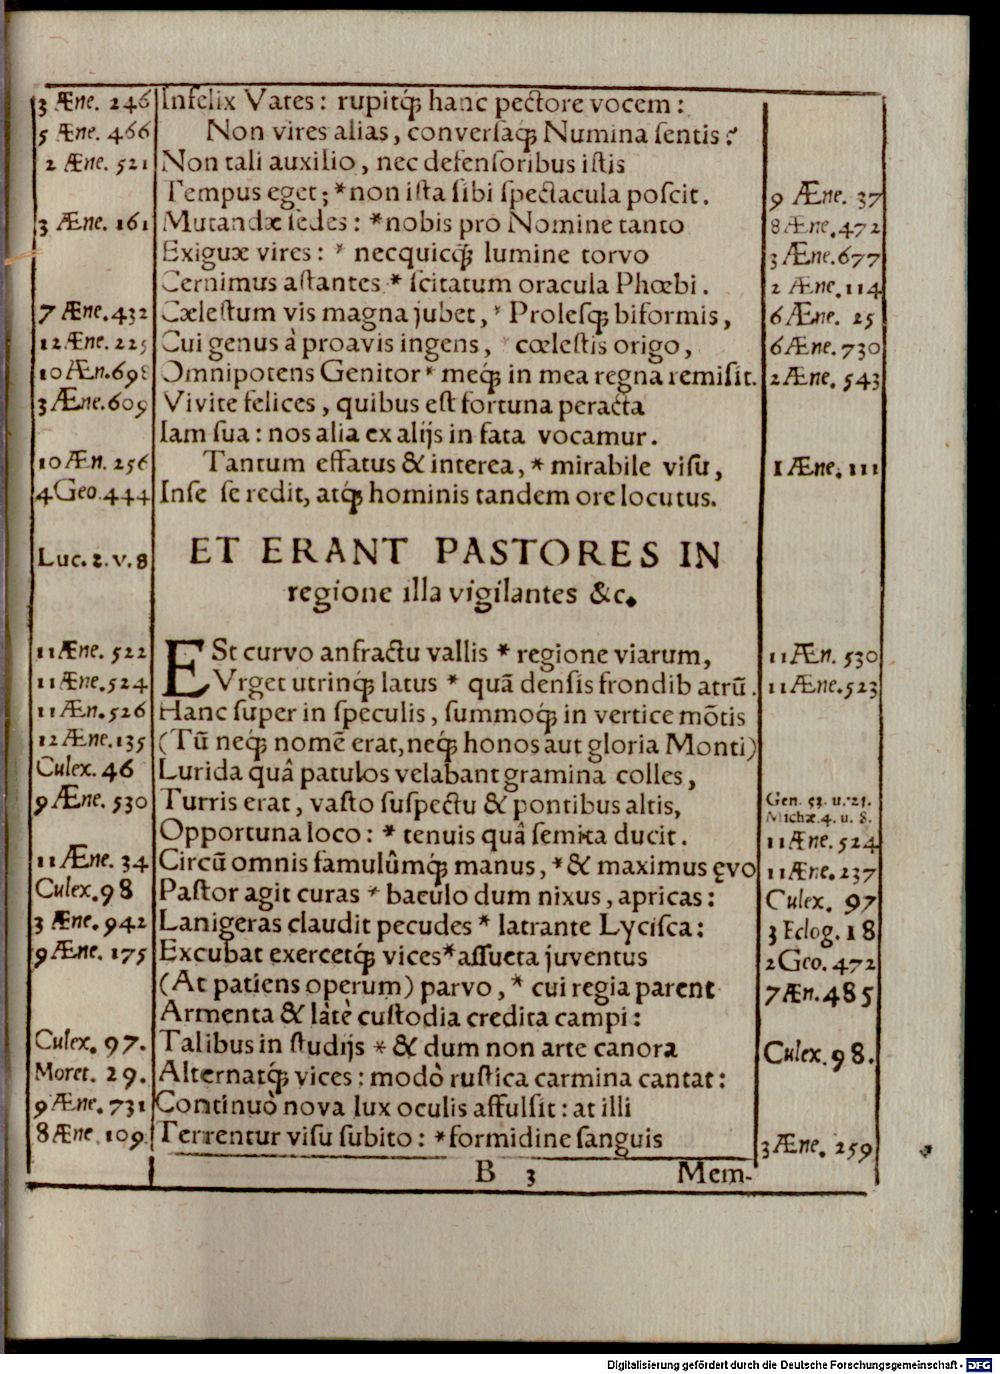 3 Æne. 246 Infelix Vates: rupitq́; hanc pectore vocem:
5 Æne. 466 Non vires alias, conversaq́; Numina sentis?
2 Æne. 521 Non tali auxilio, nec defensoribus istis
Tempus eget; * non ista sibi spectacula poscit. 9 Æne. 37
3 Æne. 161 Mutandæ sedes: * nobis pro Nomine tanto 8 Æne. 472
Exiguæ vires: * necquicq́; lumine torvo 3 Æne. 677
Cernimus astantes * scitatum oracula Phœbi. 2 Æne. 114
7 Æne. 432 Cælestum vis magna jubet, * Prolesq́; biformis, 6 Æne. 25
12 Æne. 225 Cui genus à proavis ingens, * cœlestis origo, 6 Æne. 730
10 Æn. 698 Omnipotens Genitor * meq́; in mea regna remisit. 2 Æne. 543
3 Æne. 609 Vivite felices, quibus est fortuna peracta
Iam sua: nos alia ex alijs in fata vocamur.
10 Æn. 256 Tantum effatus & interea, * mirabile visu, 1 Æne. 111
4 Geo. 444 Inse se redit, atq́; hominis tandem ore locutus.
Luc. 2. v. 8 ET ERANT PASTORES IN
regione illa vigilantes &c.
11 Æne. 522 ESt curvo anfractu vallis * regione viarum, 11 Æn. 530
11 Æne. 524 Vrget utrinq́; latus * quā densis frondib atrū. 11 Æne. 523
11 Æn. 526 Hanc super in speculis, summoq́; in vertice mōtis
12 Æne. 135 (Tū neq́; nomē erat, neq́; honos aut gloria Monti)
Culex. 46 Lurida quâ patulos velabant gramina colles,
9 Æne. 530 Turris erat, vasto suspectu & pontibus altis, Gen. u. 21.
Michæ. 4. u. 8.
Opportuna loco: * tenuis quâ semita ducit. 11 Æne. 524
11 Æne. 34 Circū omnis famulûmq́; manus, * & maximus ęvo 11 Æne. 237
Culex. 98 Pastor agit curas * baculo dum nixus, apricas: Culex. 97
3 Æne. 942 Lanigeras claudit pecudes * latrante Lycisca: 3 Eclog. 18
9 Æne. 175 Excubat exercetq́; vices * assueta juventus 2 Geo. 472
(At patiens operum) parvo, * cui regia parent 7 Æn. 485
Armenta & làtè custodia credita campi:
Culex. 97. Talibus in studijs * & dum non arte canora Culex. 98.
Moret. 29. Alternatq́; vices: modò rustica carmina cantat:
9 Æne. 731 Continuò nova lux oculis affulsit: at illi
8 Æne. 109. Terrentur visu subito: * formidine sanguis 3 Æne. 259
B 3 Mem-
Digitalisierung gefördert durch die Deutsche Forschungsgemeinschaft - DFG